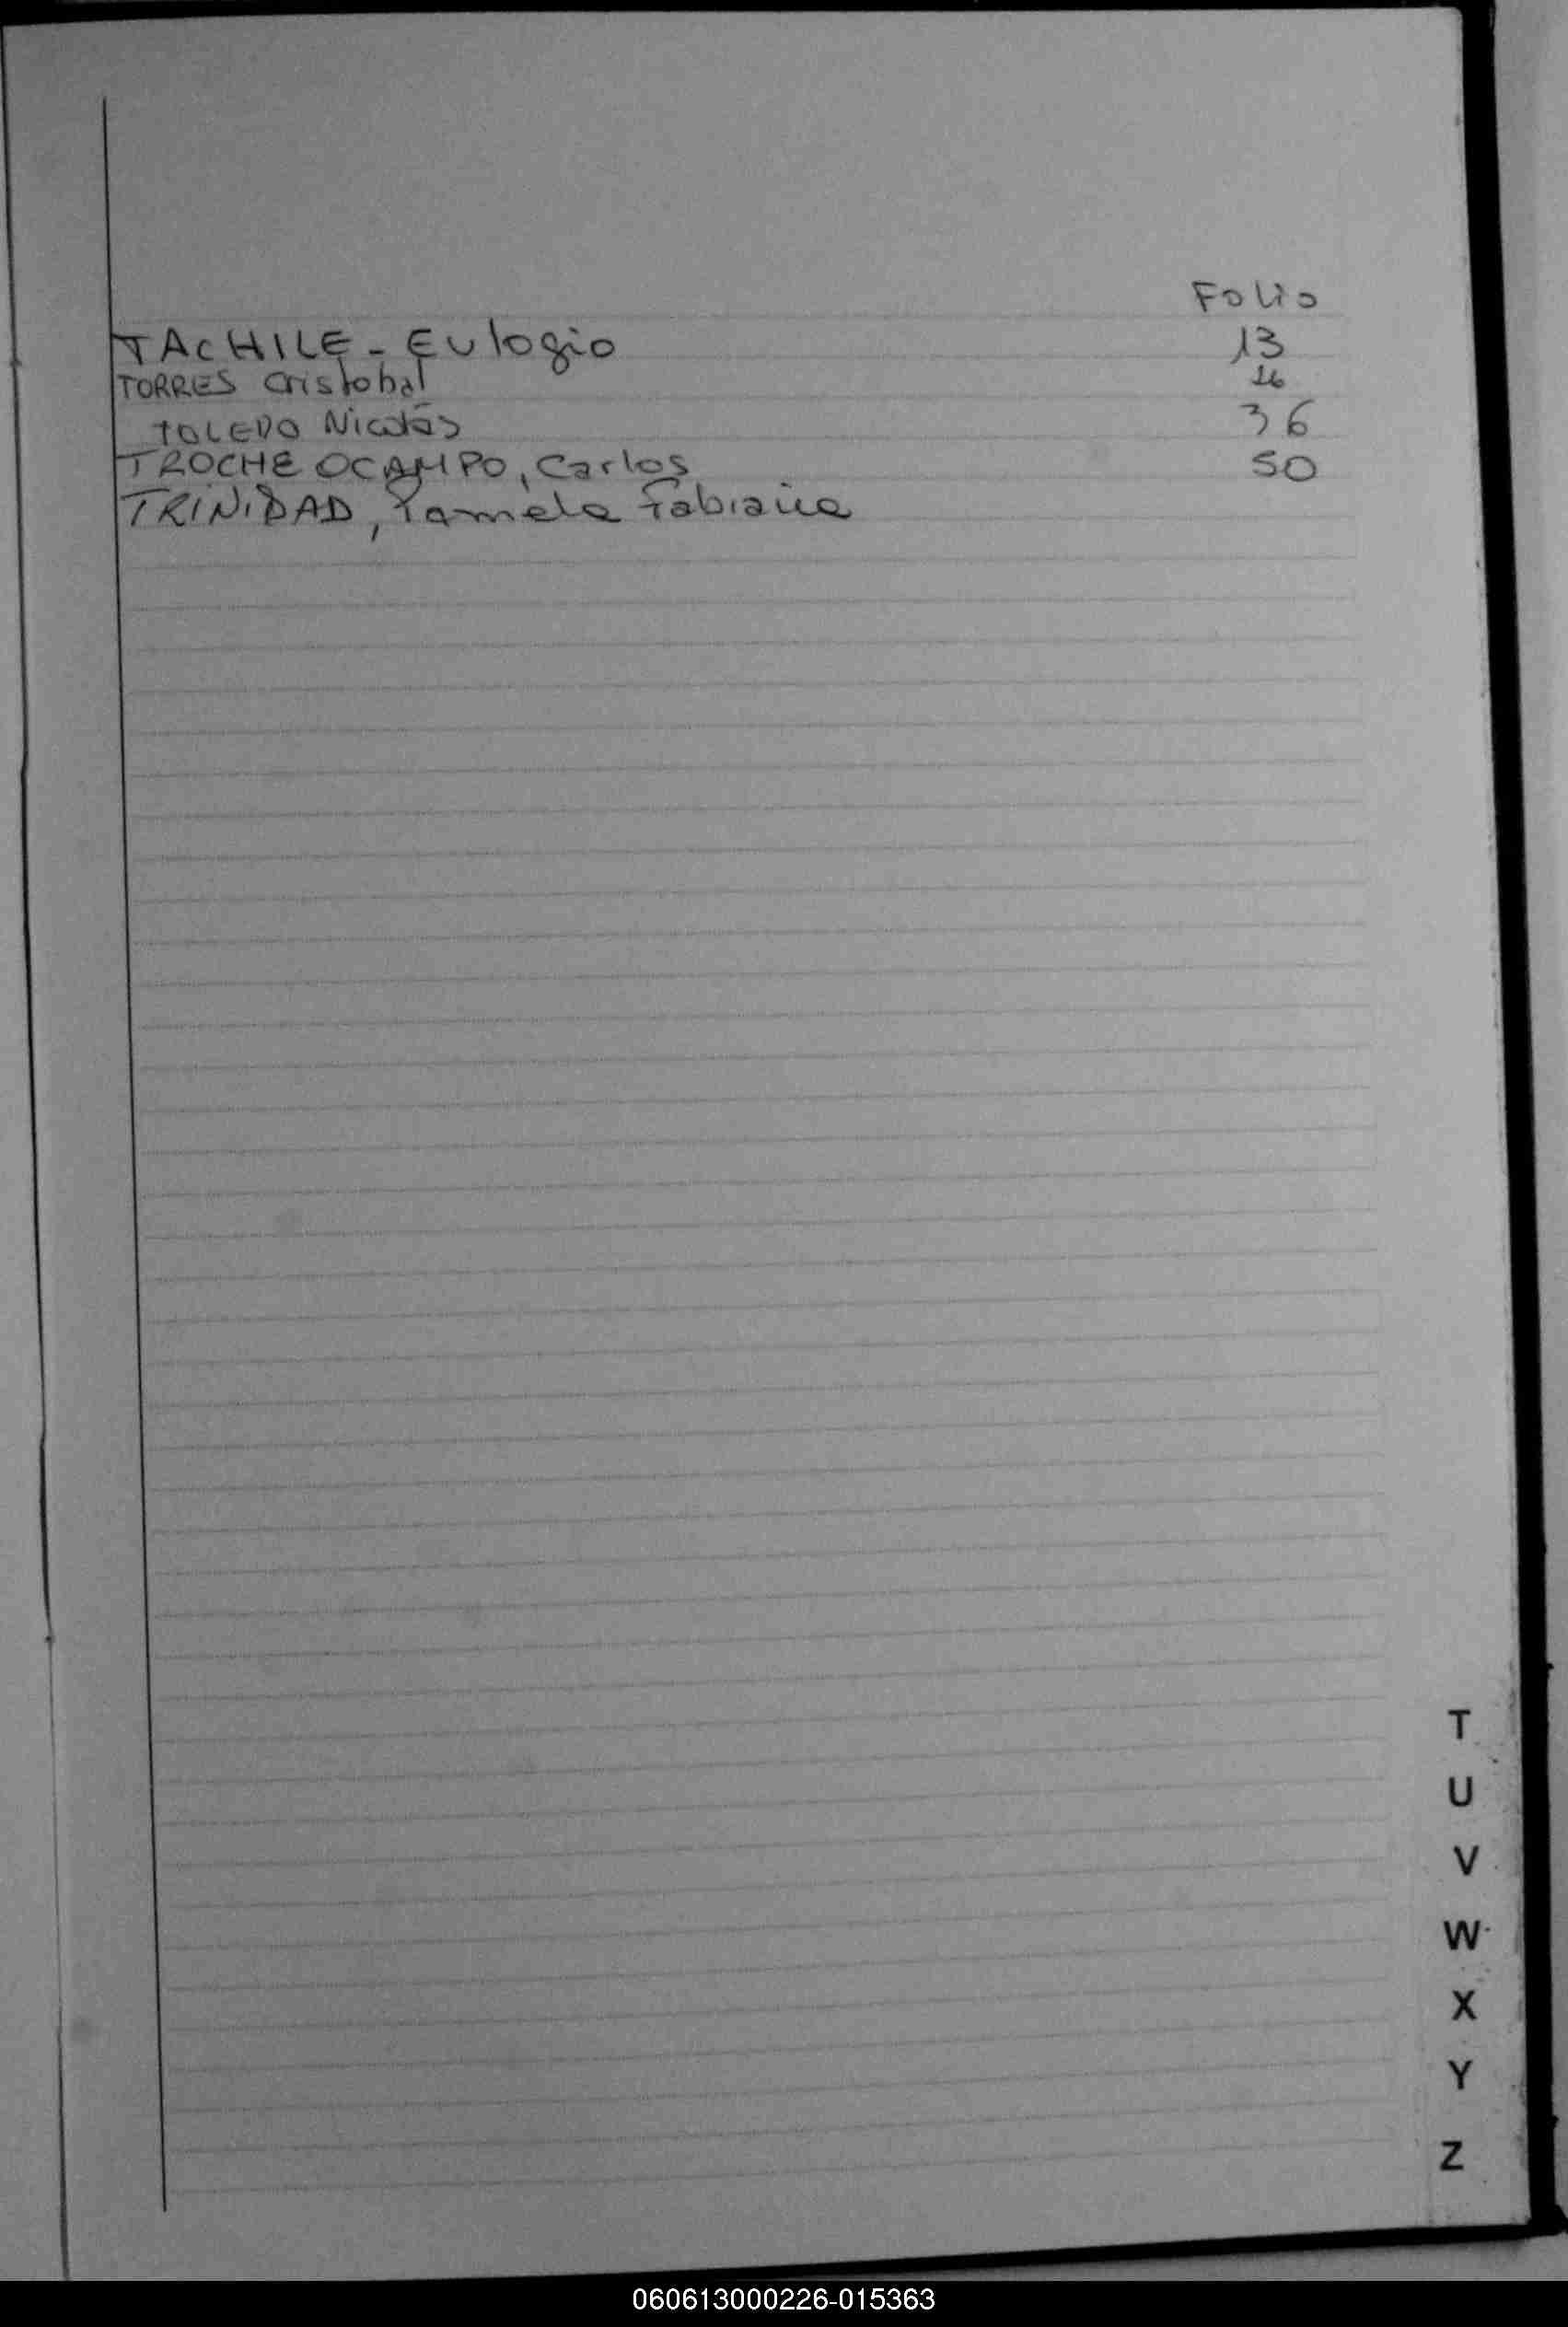 Folio
TACHILE - Eulogio 13
TORRES Cristobal 26
TOLEDO Nicolás 36
TROCHE OCAMPO, Carlos 50
TRINIDAD, Pamela Fabiana
T
U
V
W
X
Y
Z
060613000226-015363